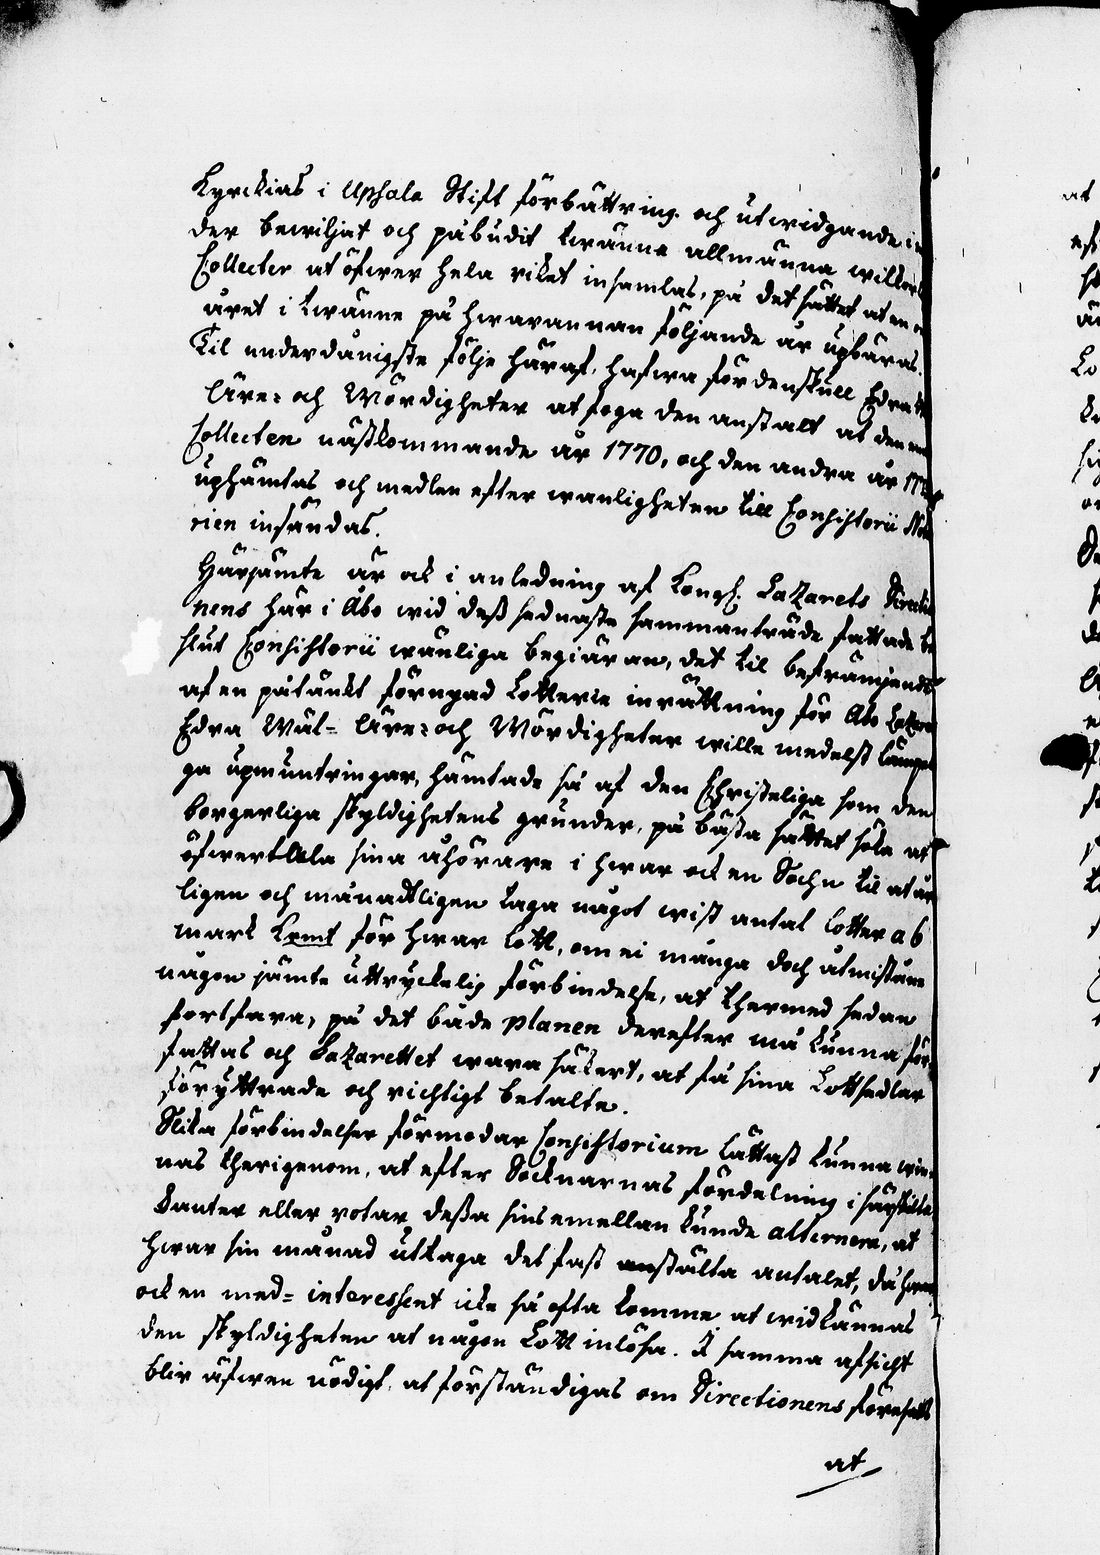 Kyrckias i Upsala Stift förbättring och utwidgande i
der bewiljat och påbudit twänne allmänna
Collecter at öfwer hela riket insamlas, på det sättet at en
året i twänne på hwarannan följande år upbäras.
Til underdånigste följe häraf, hafwa fördenskull Edra
Äre- och Wördigheter at foga den anstalt at den
Collecten nästkommande år 1770, och den andra år
uphämtas och medlen efter wanligheten till Consistorii
rien insändas.
Härjämte är ock i anledning af Kongl. Lazarets
nens här i Åbo wid deß sednaste sammanträde fattade be
slut Consistorii wänliga begiäran, det til befrämjande
af en påtänkt förnyad Lotterie inrättning för Åbo
Edra Wäl- Äre- och Wördigheter wille medelst
ga upmuntringar, hämtade så af den Christeliga som den
borgerliga skyldighetens grunder, på bästa sättet söka at
öfwertala sina åhörare i hwar ock en Sochn til at
ligen och månadtligen taga något wist antal lotter a 6
mark Krmt för hwar lott, om ei många doch åtmistone
någon jämte uttryckelig förbindelse, at thermed sedan
fortfara, på det både planen derefter må kunna för
fattas och Lazarettet wara säkert, at få sina Lottsedlar
föryttrade och richtigt betalte.
Slika förbindelser förmodar Consistorium lättast kunna win
nas therigenom, at efter Socknarnas fördelning i särskilta
kanter eller rotar deßa sins emellan kunde alternera, at
hwar sin månad uttaga det fast anstälta antalet, då
ock en med- interessent icke så ofta komme at widkännas
den skyldigheten at någon Lott inlösa. I samma afsicht
blir äfwen nödigt, at förständigas om Directionens
at